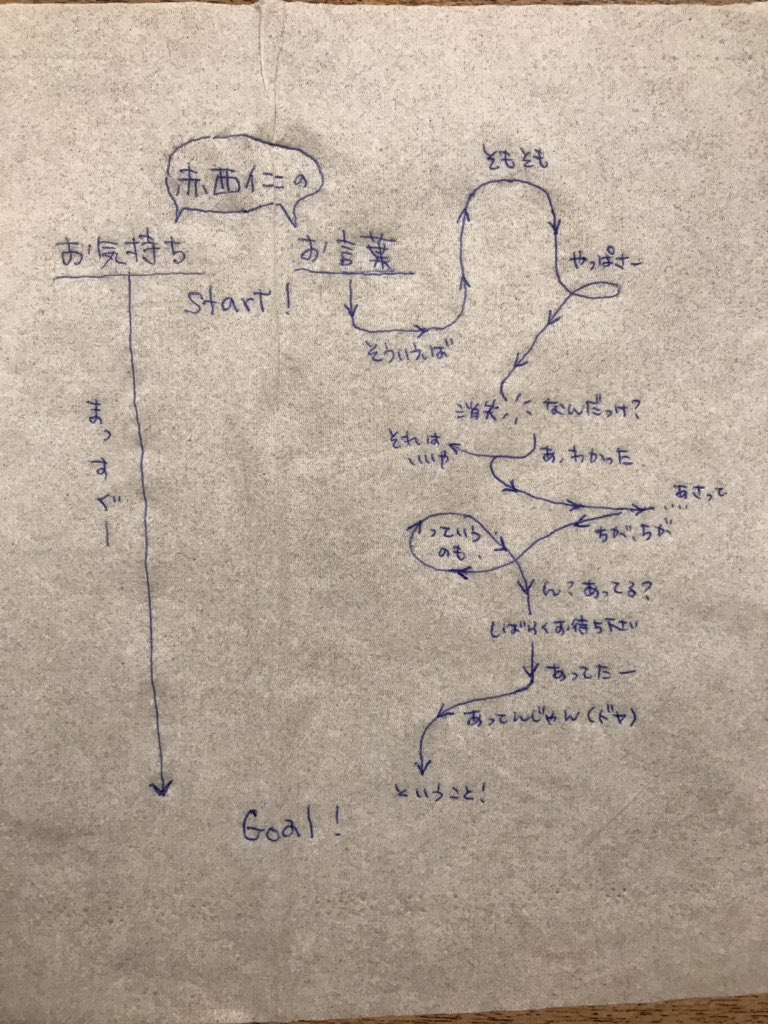 赤西仁の
お気持ち
お言葉
Start!
まっすぐー
そういうば
そもそも
やっぱさー
消失
なんだっけ?
それは
いいや
あ、わかった
あさって
ちが、ちが
っていう
のも、
ん?あってる?
しばらくお待ち下さい
あってたー
あってんじゃん(ドヤ)
ということ!
Goal!